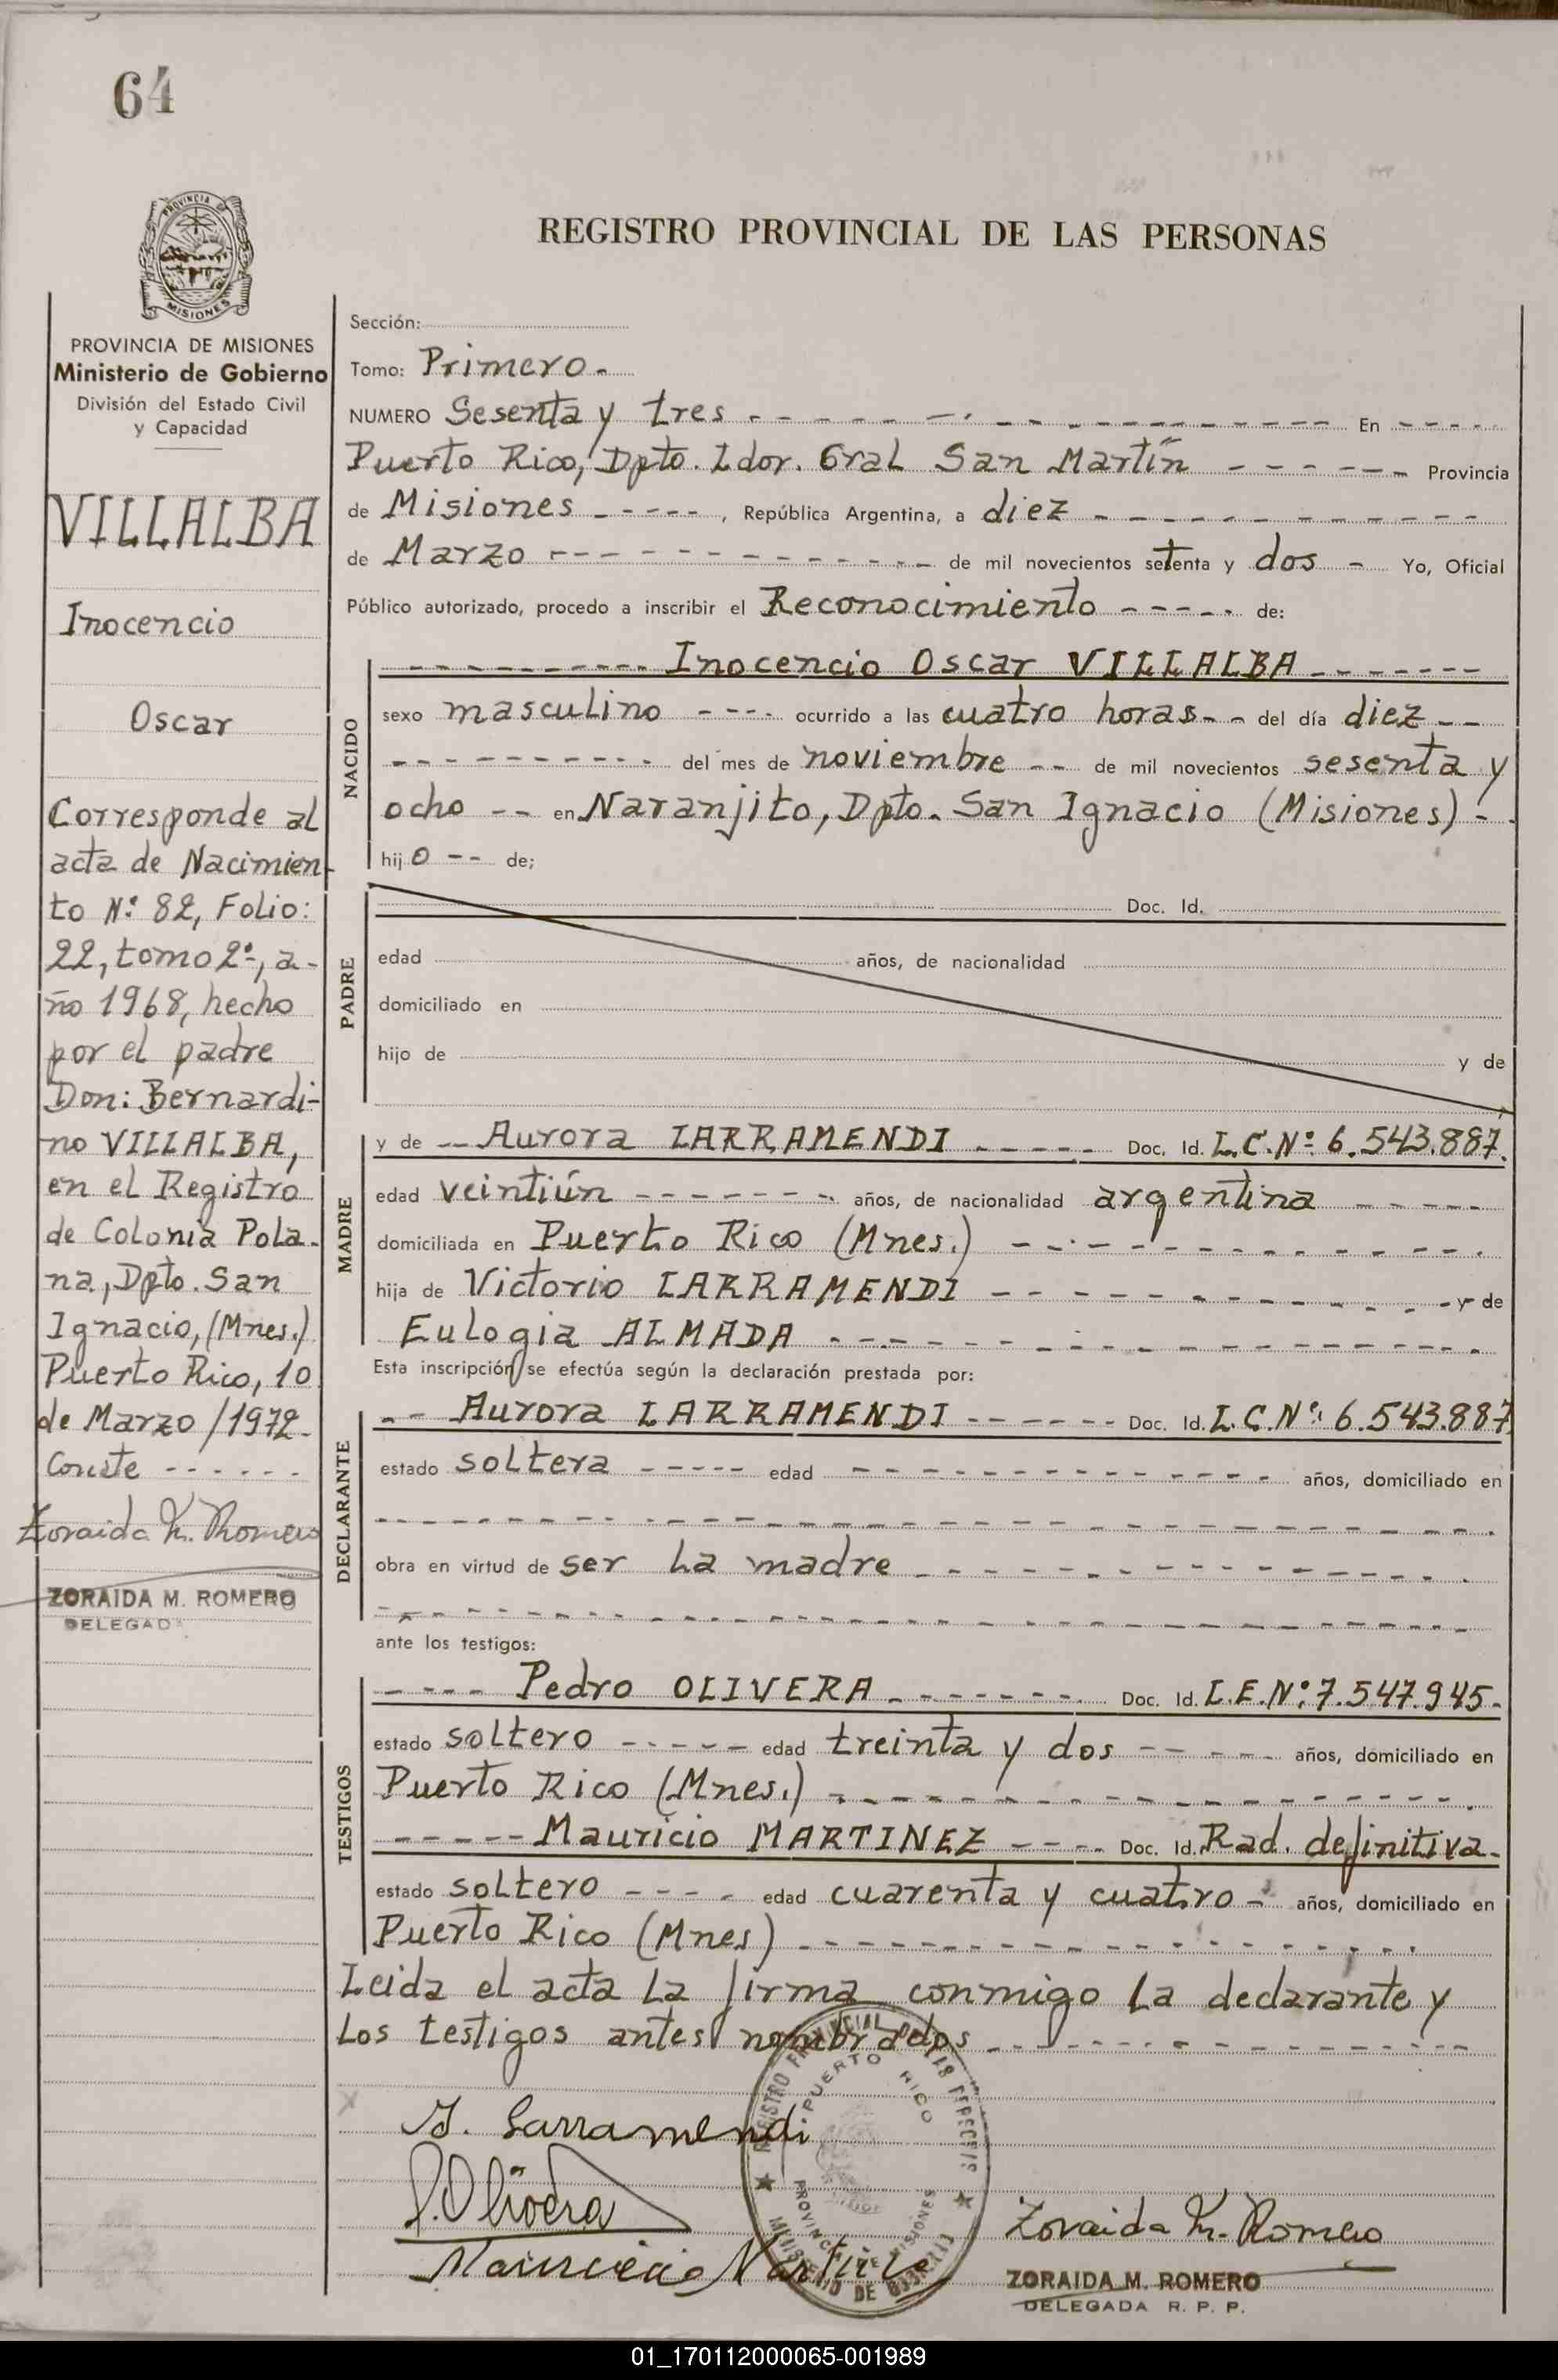 64
PROVINCIA DE
MISIONES
REGISTRO PROVINCIAL DE LAS PERSONAS
PROVINCIA DE MISIONES
Ministerio de Gobierno
División del Estado Civil
y Capacidad
VILLALBA
Inocencio
Oscar
Corresponde al
acta de Nacimien-
to Nº 82, Folio:
22, tomo 2º, a-
ño 1968, hecho
por el padre
Don: Bernardi-
no VILLALBA,
en el Registro
de Colonia Pola-
na, Dpto. San
Ignacio, (Mnes.)
Puerto Rico, 10
de Marzo/1972-
Conste - - - - - -
Zoraida M. Romero
ZORAIDA M. ROMERO
DELEGADA
Sección:
Tomo: Primero.
NUMERO Sesenta y tres - - - - - En - - - - -
Puerto Rico, Dpto. Ldor. Gral San Martín - - - - - - Provincia
de Misiones - - - - - , República Argentina, a diez - - - - -
de Marzo - - - - - de mil novecientos setenta y dos - Yo, Oficial
Público autorizado, procedo a inscribir el Reconocimiento - - - - - de:
NACIDO
- - - - - Inocencio Oscar VILLALBA - - - - -
sexo masculino - - - - ocurrido a las cuatro horas - - del día diez - -
- - - - - del mes de noviembre - - de mil novecientos sesenta y
ocho - - en Naranjito, Dpto. San Ignacio (Misiones) -
hijo - - de;
PADRE
Doc. Id.
edad años, de nacionalidad
domiciliado en
hijo de y de
MADRE
y de - - Aurora LARRAMENDI - - - - - Doc. Id. L.C.Nº 6.543.887.
edad veintiún - - - - - años, de nacionalidad argentina - - - - -
domiciliada en Puerto Rico (Mnes.) - - - - -
hija de Victorio LARRAMENDI - - - - - y de
Eulogia ALMADA - - - - -
Esta inscripción se efectúa según la declaración prestada por:
DECLARANTE
- - Aurora LARRAMENDI - - - - - Doc. Id. L.C.Nº: 6.543.887
estado soltera - - - - - edad - - - - - años, domiciliado en
- - - - -
obra en virtud de ser la madre - - - - -
- - - - -
ante los testigos:
TESTIGOS
- - - - Pedro OLIVERA - - - - - Doc. Id. L.E.Nº: 7.547.945-
estado soltero - - - - - edad treinta y dos - - - - - años, domiciliado en
Puerto Rico (Mnes.) - - - - -
- - - - - Mauricio MARTINEZ - - - - Doc. Id. Rad. definitiva-
estado soltero - - - - edad cuarenta y cuatro - años, domiciliado en
Puerto Rico (Mnes) - - - - -
Leida el acta la firma conmigo la declarante y
los testigos antes nombrados - - - - -
REGISTRO PROVINCIAL DE LAS PERSONAS
PUERTO RICO
PROVINCIA DE MISIONES
MINISTERIO DE GOBIERNO
Larramendi
P. Olivera
Mauricio Martinez
Zoraida M. Romero
ZORAIDA M. ROMERO
DELEGADA R. P. P.
01_170112000065-001989